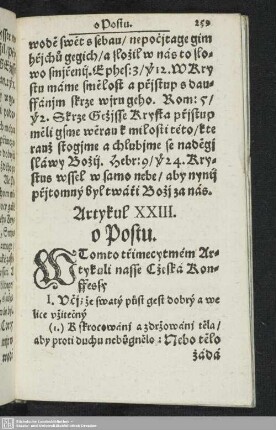 o Postu. 259
wodě swět s sebau / nepočjtage gim
hějchů gegich / a složil w nás to slo-
wo smjřenj. Ephes: 3 / ỳ 12. W Kry-
stu máme smělost a přjstup s dau-
ffánjm skrze wjru geho. Rom: 5 /
ỳ 2. Skrze Gežjsse Krysta přjstup
měli gsme wěrau k milosti této / kte
rauž stogjme a chlubjme se naděgj
sláwy Božj. Hebr: 9 / ỳ 24. Kry-
stus wssel w samo nebe / aby nynj
přjtomný byl twáři Božj za nás.
Artykul XXIII.
o Postu.
W Tomto třimecytmém Ar-
tykuli nasse Cžeská Kon-
ffessy
1. Včj: že swatý půst gest dobrý a we
lice vžitečný
(1.) K skrocowánj a zdržowánj těla /
aby proti duchu nebůgnělo: Nebo tělo
žádá